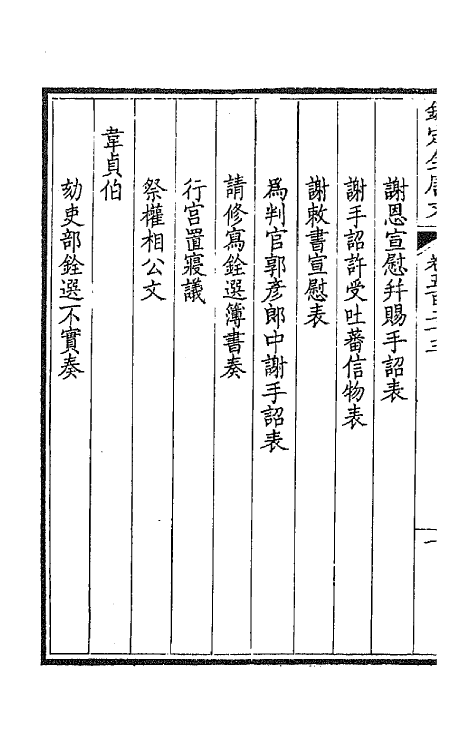 欽定全唐文 卷五百二十三 一
謝恩宣慰幷賜手詔表
謝手詔許受吐蕃信物表
謝敕書宣慰表
爲判官郭彥郎中謝手詔表
請修寫銓選簿書奏
行宮置寢議
祭權相公文
韋貞伯
劾吏部銓選不實奏